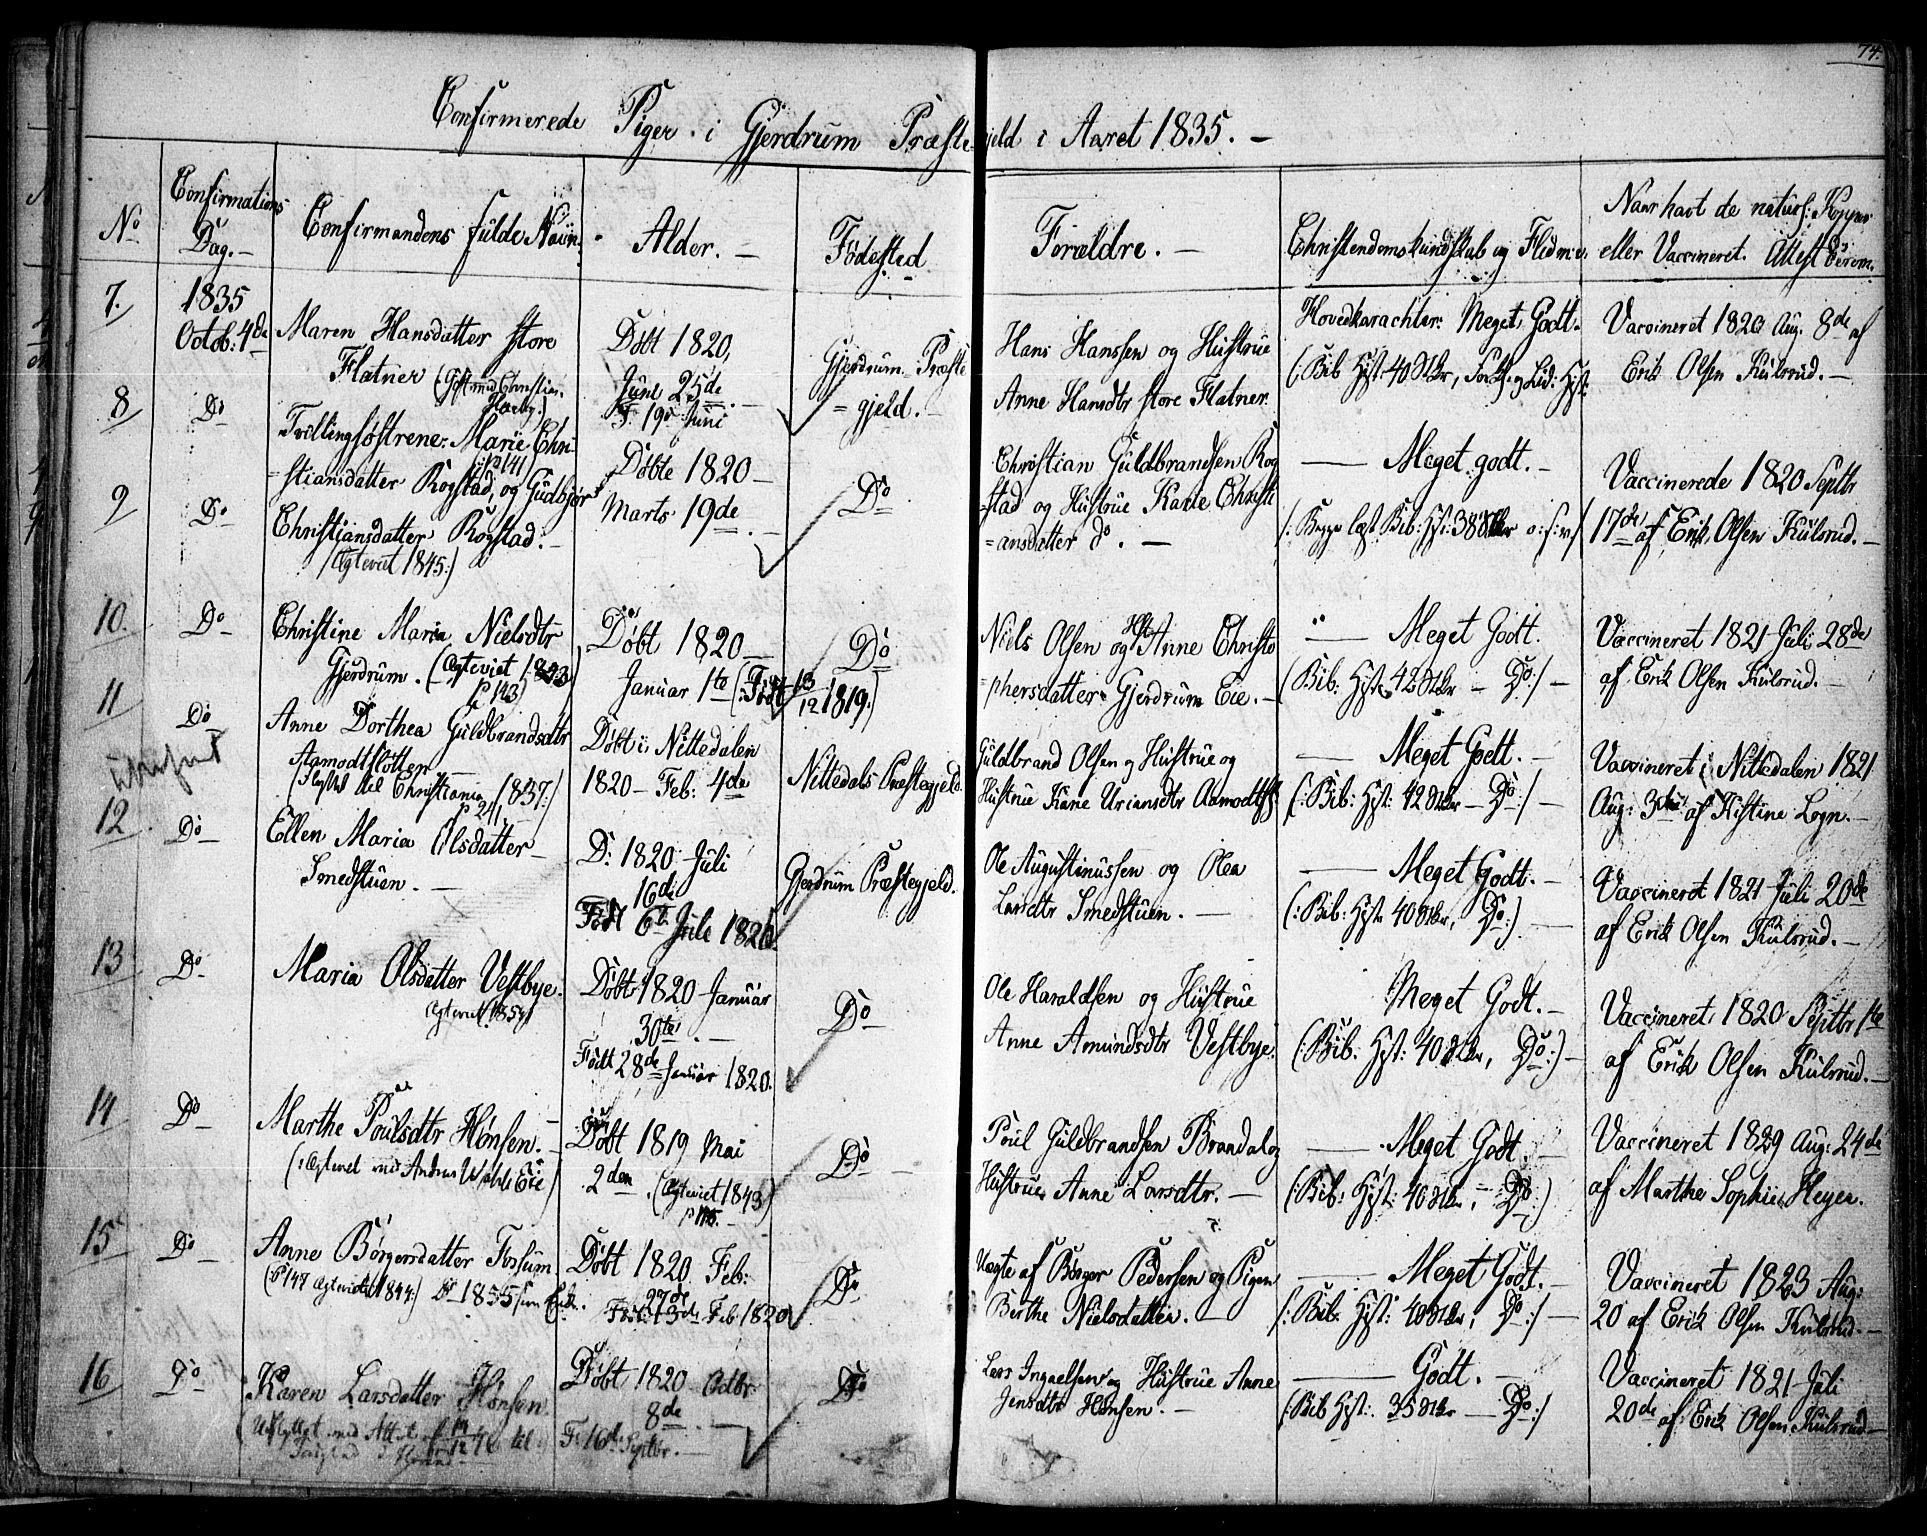 74.
Confirmerede Piger i Gjerdrum Præstegjeld i Aaret 1835. —
No
Confirmations Dag. —
Confirmandens fulde Navn.
Alder. —
Fødested
Forældre. —
Christendomskundskab og Flid
Naar havt de naturl: Kopper eller Vaccineret. Attest derom.
7.
1835
Octob: 4de
Maren Hansdatter store
Flatner (Gift med Christian
Døbt 1820,
Juni 25de. —
F. 19de Juni
Gjerdrum Præste
= gjeld. —
Hans Hanssen og Hustrue
Anne Hansdtr store Flatner.
Hovedkarachter: Meget Godt.
(: Bib. Hist: 40 Stkr,
Vaccineret 1820 Aug: 8de af
Erik Olsen Kulsrud. —
8
Do
9
Do
Tvillingsøstrene: Marie Chri
p 141
= stiansdatter Rogstad, og Gudbjør
Christiansdatter Rogstad. —
(Ægteviet 1845:)
Døbte 1820 —
Marts 19de. —
Do
Christian Guldbrandsen Rog
= stad og Hustrue Karie Christi
= ansdatter do. —
— Meget godt. —
Bib: Hist: 38 Stkr o: s: v:/
Vaccinerede 1820 Septbr
17de af Erik Olsen Kulsrud. —
10.
Do
Christine Maria Nielsdtr
Gjerdrum. (Ægteviet 1843)
p 143)
Døbt 1820 —
Januar 1te (: Født 13/12 1819.)
Do
Niels Olsen og Hst. Anne Christo
= phersdatter Gjerdrum Eie. —
— Meget Godt.
(Bib: Hist: 42 Stkr — Do:/ —
Vaccineret 1821 Juli 28de
af Erik Olsen Kulsrud. —
11
Do
Anne Dorthea Guldbrandsdtr
Aamodtslotten
(Flyttet til Christiania 1837:)
p 241.
Døbt i Nittedalen
1820 — Feb: 4de
Nittedals Præstegjeld.
Guldbrand Olsen og Hustrue og
Hustrue Kane Uriansdtr
— Meget Godt. —
(: Bib: Hist: 42 Stkr — Do:/ —
Vaccineret i Nittedalen 1821
Aug: 3die af Kistine Logn. —
12
Do
Ellen Maria Olsdatter —
Smedstuen. —
D: 1820 Juli
16de
Født 6te Juli 1820.
Gjerdrum Præstegjeld.
Ole Augustinussen og Olea
Larsdtr Smedstuen. —
— Meget Godt. —
(: Bib: Hist: 40 Stkr, Do:) —
Vaccineret 1821 Juli 20de
af Erik Olsen Kulsrud. —
13
Do
Maria Olsdatter Vestbye.
Ægteviet 1854
Døbt 1820 Januar
30te. —
Født 28de Januar 1820.
Do
Ole Haraldsen og Hustrue
Anne Amundsdtr Vestbye.
Meget Godt. —
(: Bib: Hist: 40 Stkr, Do:) —
Vaccineret 1820 Septbr 1te
af Erik Olsen Kulsrud. —
14
Do
Marthe Poulsdtr Hønsen. —
(: Ægteviet med Andreas Eie)
Døbt 1819 Mai
2den. (Ægteviet 1843)
Do
Poul Guldbrandsen Brandal og
Hustrue Anne Larsdtr. —
— Meget Godt. —
(: Bib: Hist: 40 Stkr, — Do:)
Vaccineret 1829 Aug: 24de
af Marthe Sophie Heyer.
15
Do
Anne Børgersdatter Fossum
(p 147 Ægteviet 1844:) 1855
Døbt 1820 Feb:
27de
Født 13de Feb 1820
Do
Uægte af Børger Pedersen og Pigen
Berthe Nielsdatter. —
— Meget Godt. —
/: Bib: Hist: 40 Stkr, Do:/ —
Vaccineret 1823 Aug:
20 af Erik Olsen Kulsrud. —
16
Do
Karen Larsdatter Hønsen.
(Udflyttet med Attest af til
Døbt 1820 Octbr
8de. —
F. 16de Septbr. —
Do
Lars Ingaelsen og Hustrue Anne
Jensdtr Hønsen. —
— Godt. —
(: Bib Hist: 35 Stkr — Do:/
Vaccineret 1821 Juli
20de af Erik Olsen Kulsrud —